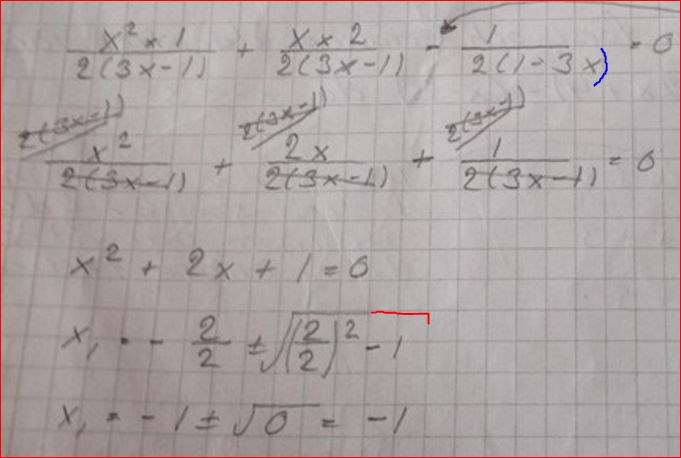 x² × 1 / 2(3x-1) + x × 2 / 2(3x-1) - 1 / 2(1-3x) = 0
2(3x-1) 2(3x-1) 2(3x-1)
x² / 2(3x-1) + 2x / 2(3x-1) + 1 / 2(3x-1) = 0
x² + 2x + 1 = 0
x₁ = - 2/2 ± √(2/2)² - 1
x₁ = -1 ± √0 = -1